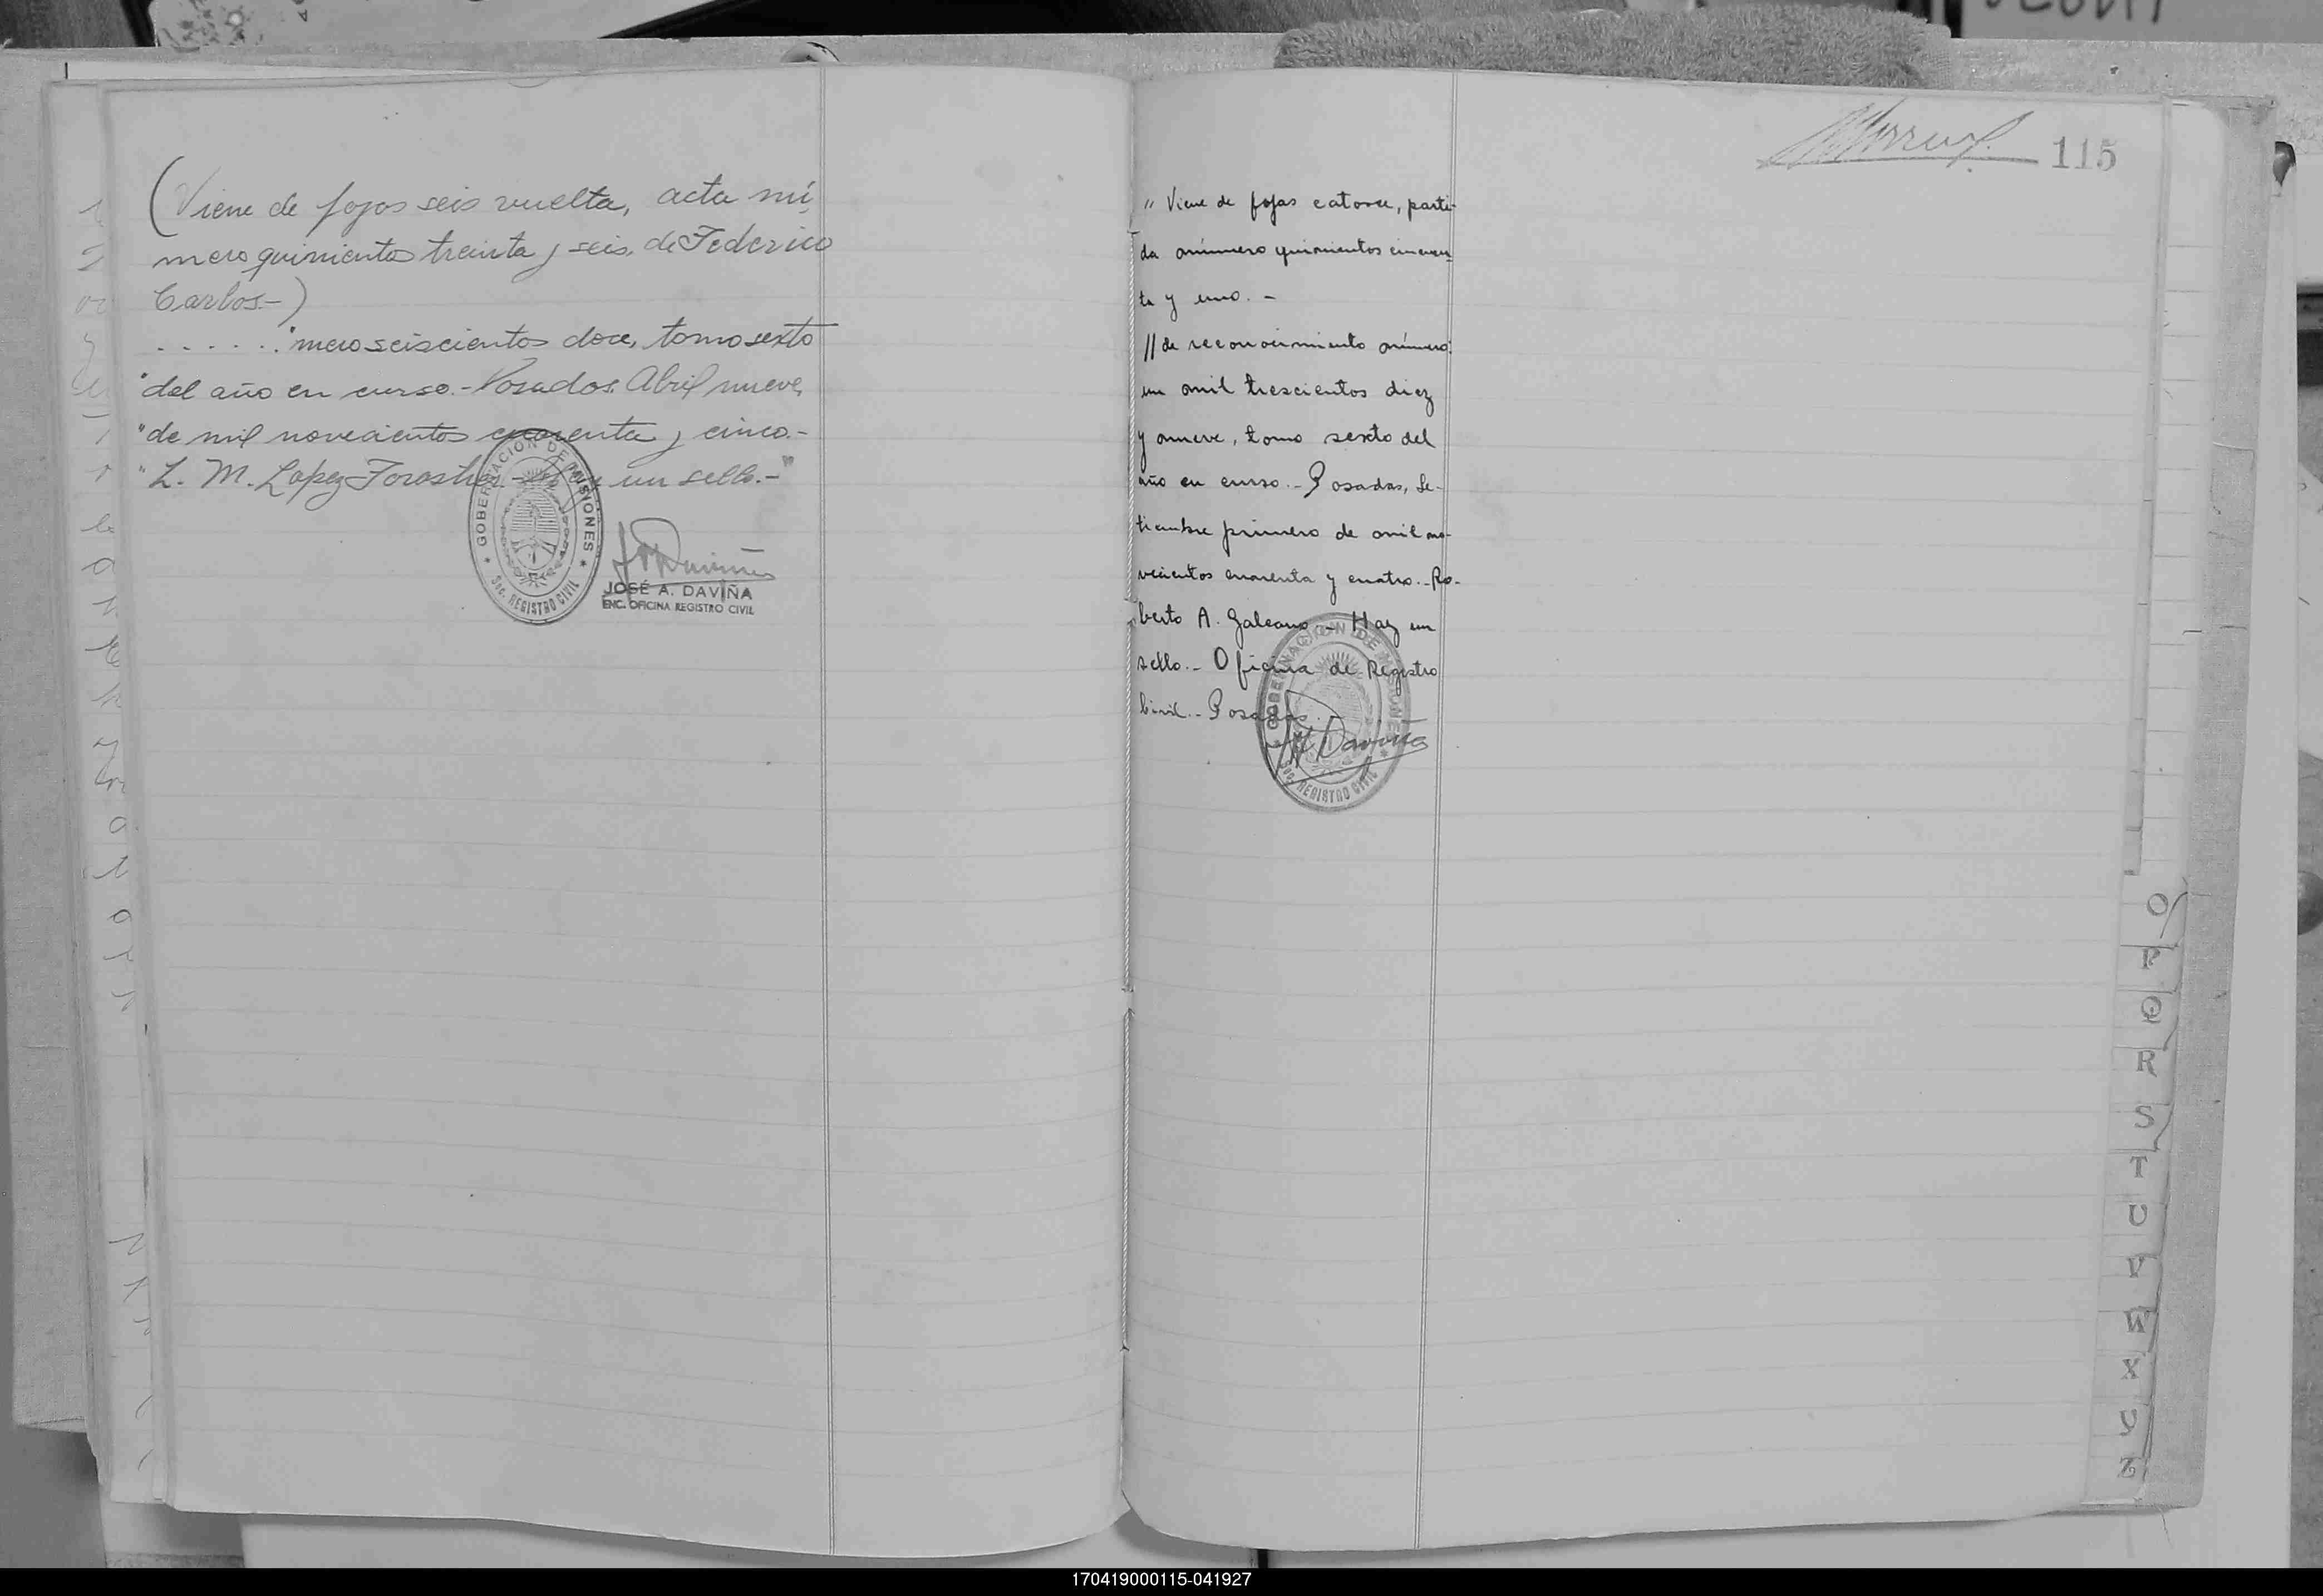 (Viene de fojas seis vuelta, acta nú,
mero quinientos treinta y seis, de Federico
Carlos.-)
. . . . . . "mero seiscientos doce, tomo sexto
"del año en curso.- Posadas, Abril nueve,
"de mil novecientos cuarenta y cinco.-
"L. M. Lopez Forastier - Hay un sello.-"
GOBERNACIÓN DE MISIONES
Sec. REGISTRO CIVIL
JOSÉ A. DAVIÑA
ENC. OFICINA REGISTRO CIVIL
115
" Viene de fojas catorce, parti-
da número quinientos cincuen-
ta y uno. -
// de reconocimiento número:
un mil trescientos diez
y nueve, tomo sexto del
año en curso.- Posadas, Se-
tiembre primero de mil no-
vecientos cuarenta y cuatro.- Ro-
berto A. Galeano - Hay un
sello.- Oficina de Registro
Civil.- Posadas.-
GOBERNACION DE MISIONES
Sec. REGISTRO CIVIL
O
P
Q
R
S
T
U
V
W
X
Z
170419000115-041927